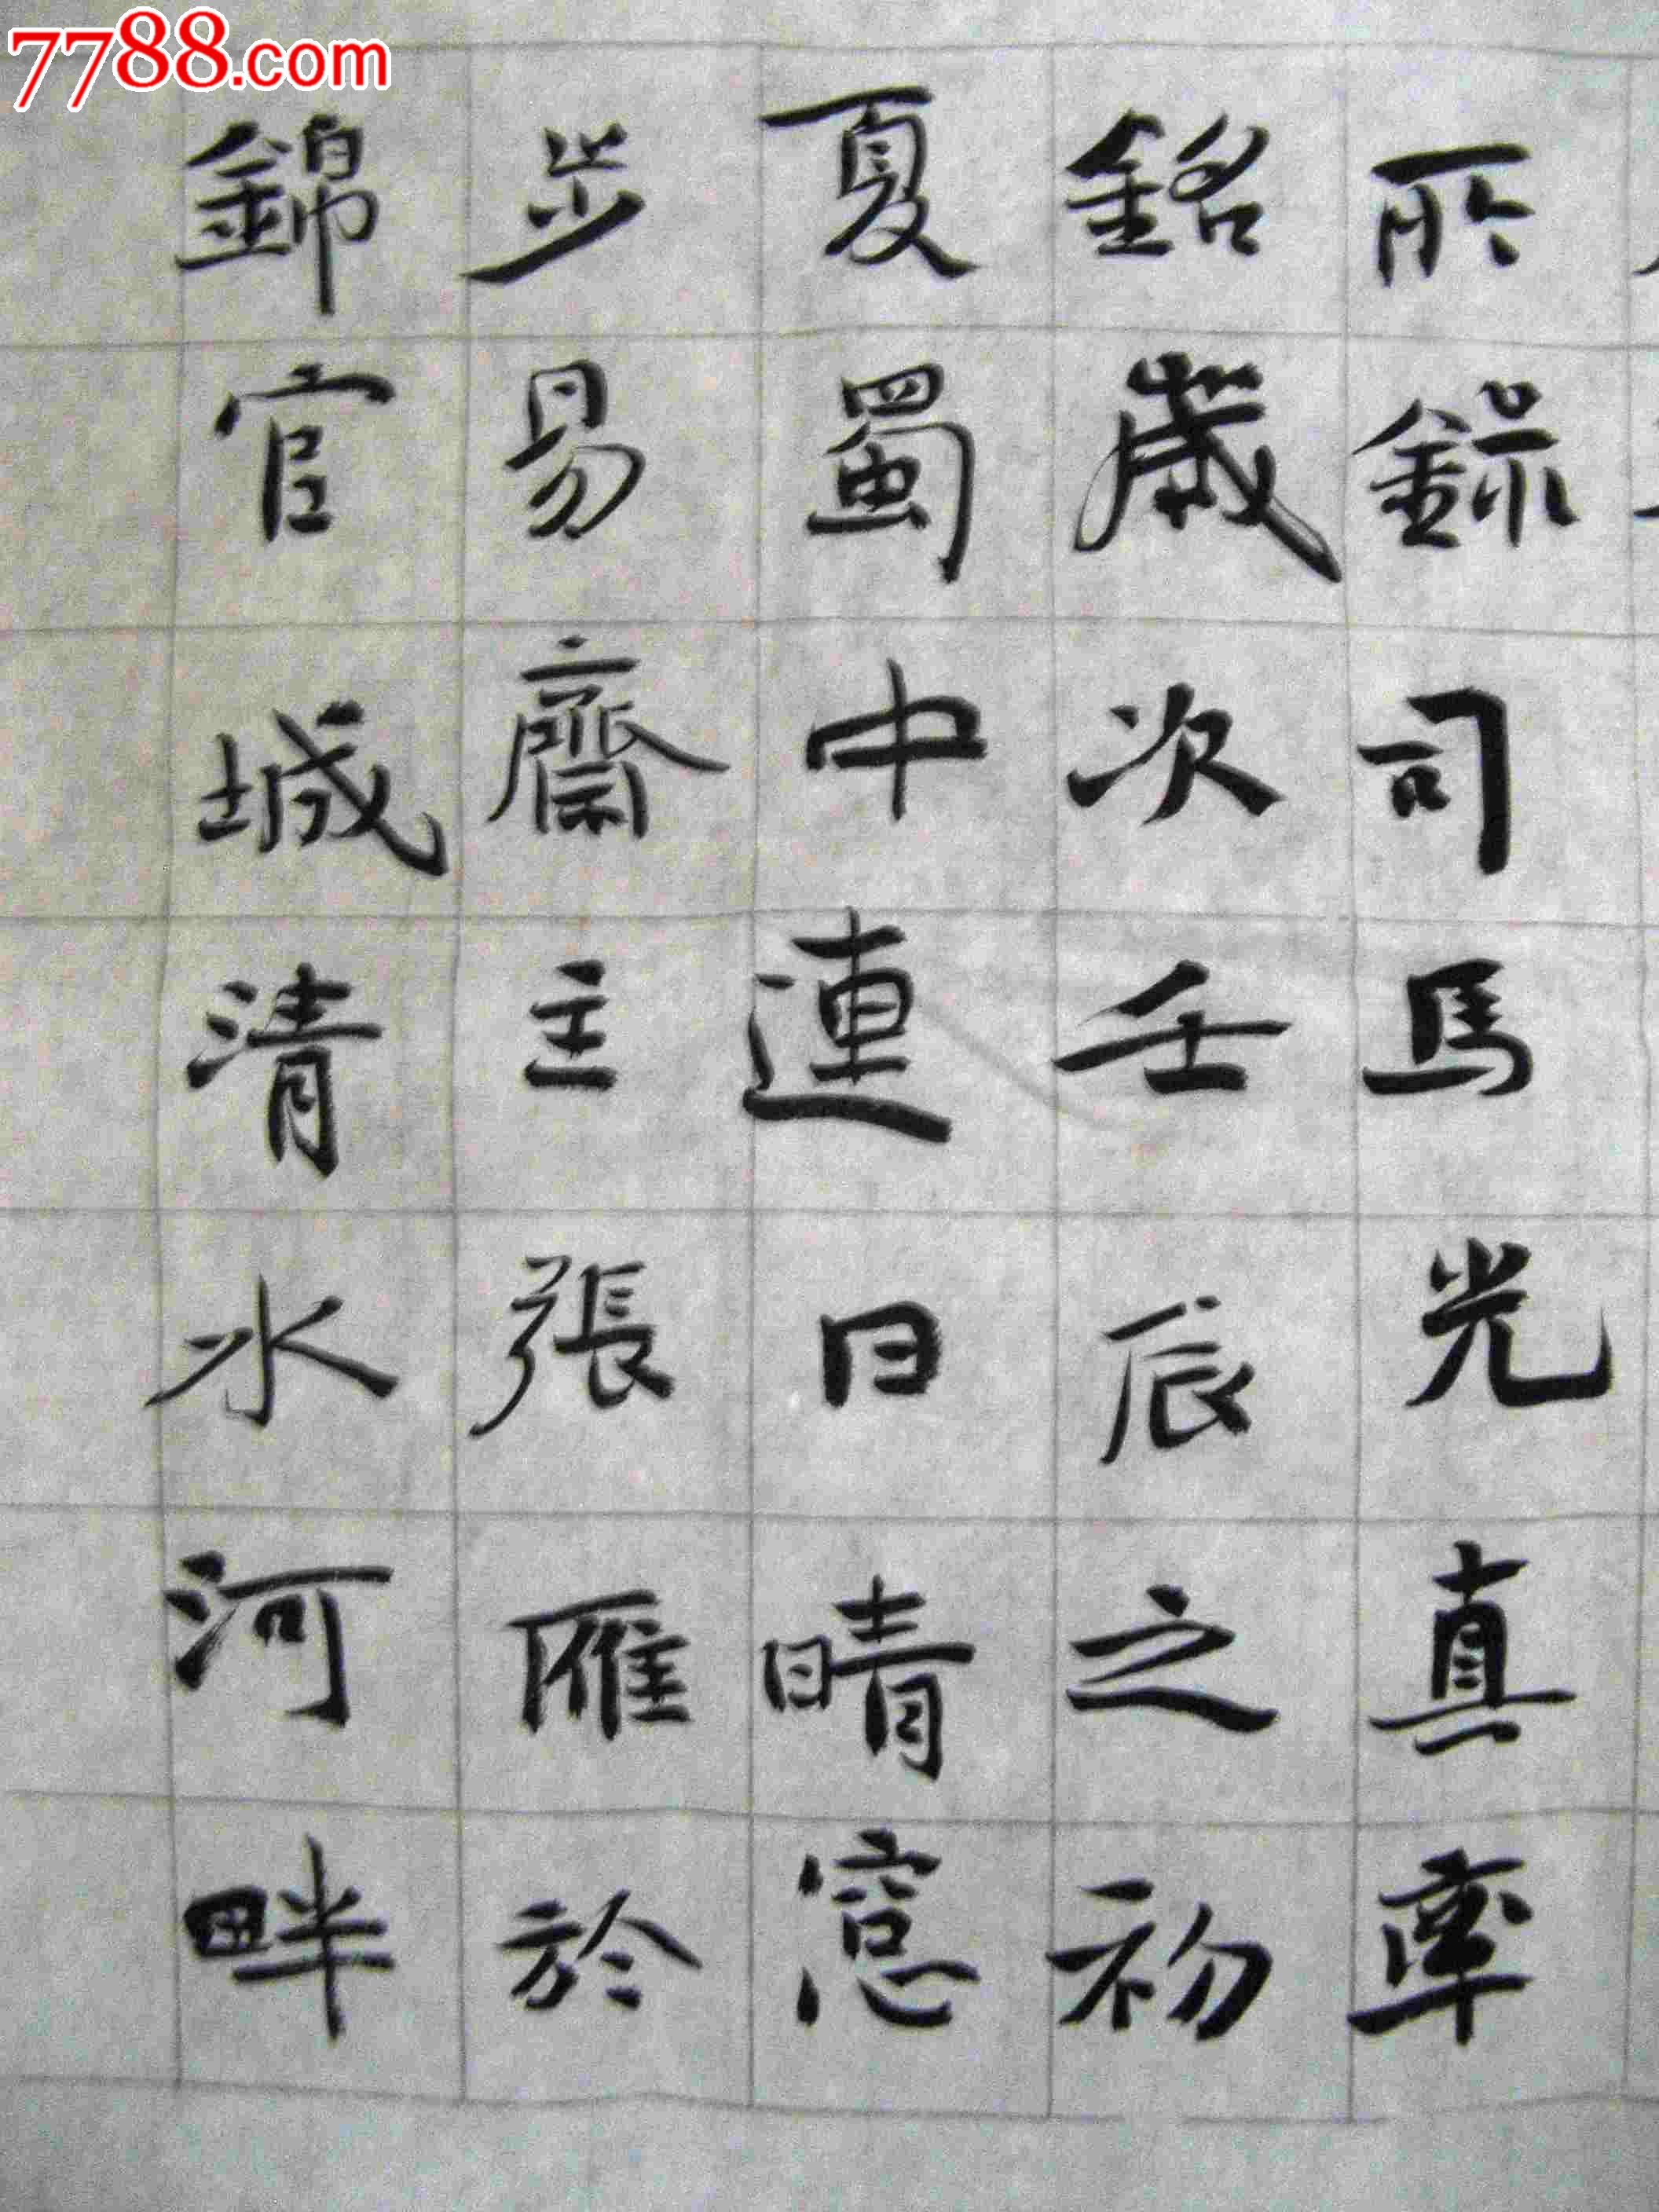 7788.com
所錄司馬光真率
銘歲次壬辰之初
夏蜀中連日晴窓
步易齋主張雁於
錦官城清水河畔